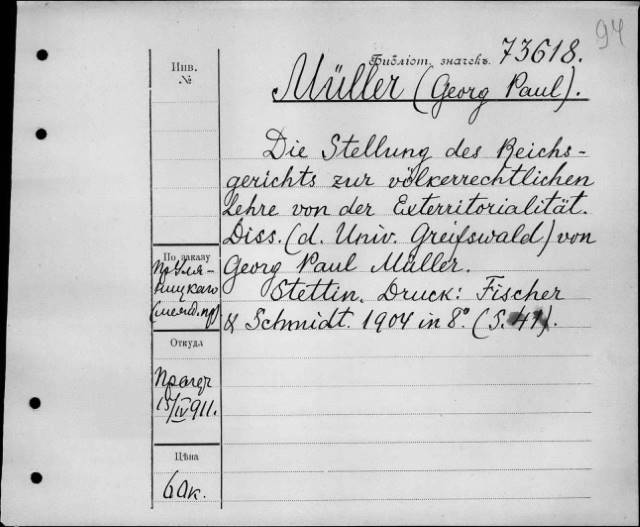 94
Библіот. значекъ 73618.
Инв.
№
Müller (Georg Paul).
Die Stellung des Reichs-
gerichts zur völkerrechtlichen
Lehre von der Exterritorialität.
Diss. (d. Univ. Greifswald) von
Georg Paul Müller.
Stettin. Druck: Fischer
& Schmidt. 1904 in 8º (S. 41).
По заказу
пр Уля-
ницкаго
(межд. пр)
Откуда
15/IV 911.
Цѣна